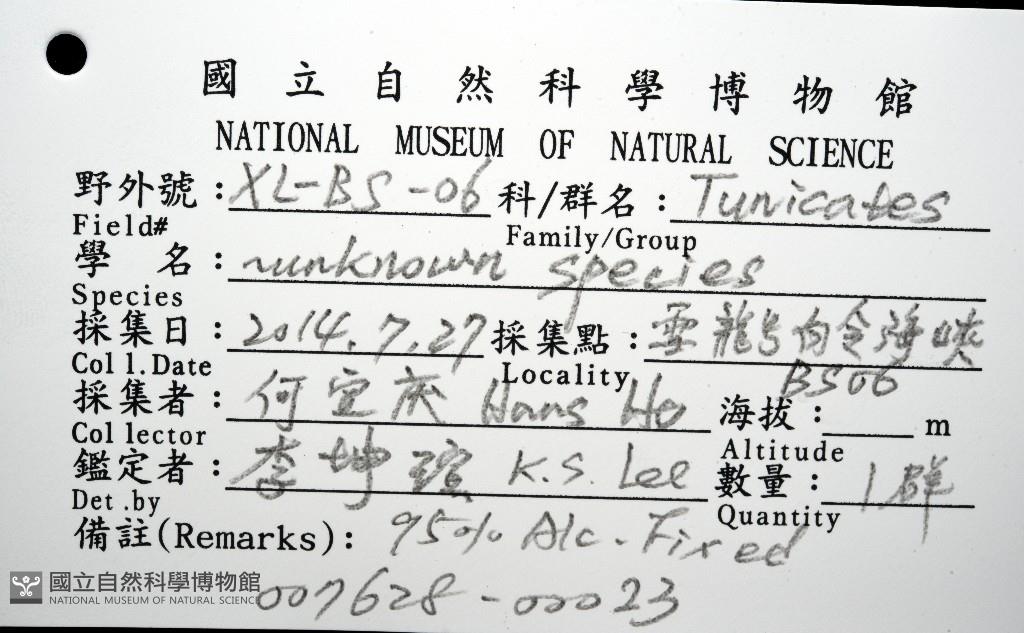 國立自然科學博物館
NATIONAL MUSEUM OF NATURAL SCIENCE
野外號：XL-BS-06 科/群名：Tunicates
Field# Family/Group
學名：~unknown species
Species
採集日：2014.7.27 採集點：雲龍与白令海峽
Coll.Date Locality BS06
採集者：何宣庆 Hans Ho 海拔： m
Collector Altitude
鑑定者：李坤瑄 K.S. Lee 數量：1群
Det.by Quantity
備註(Remarks)：95% Alc. Fixed
007628-00023
國立自然科學博物館
NATIONAL MUSEUM OF NATURAL SCIENCE